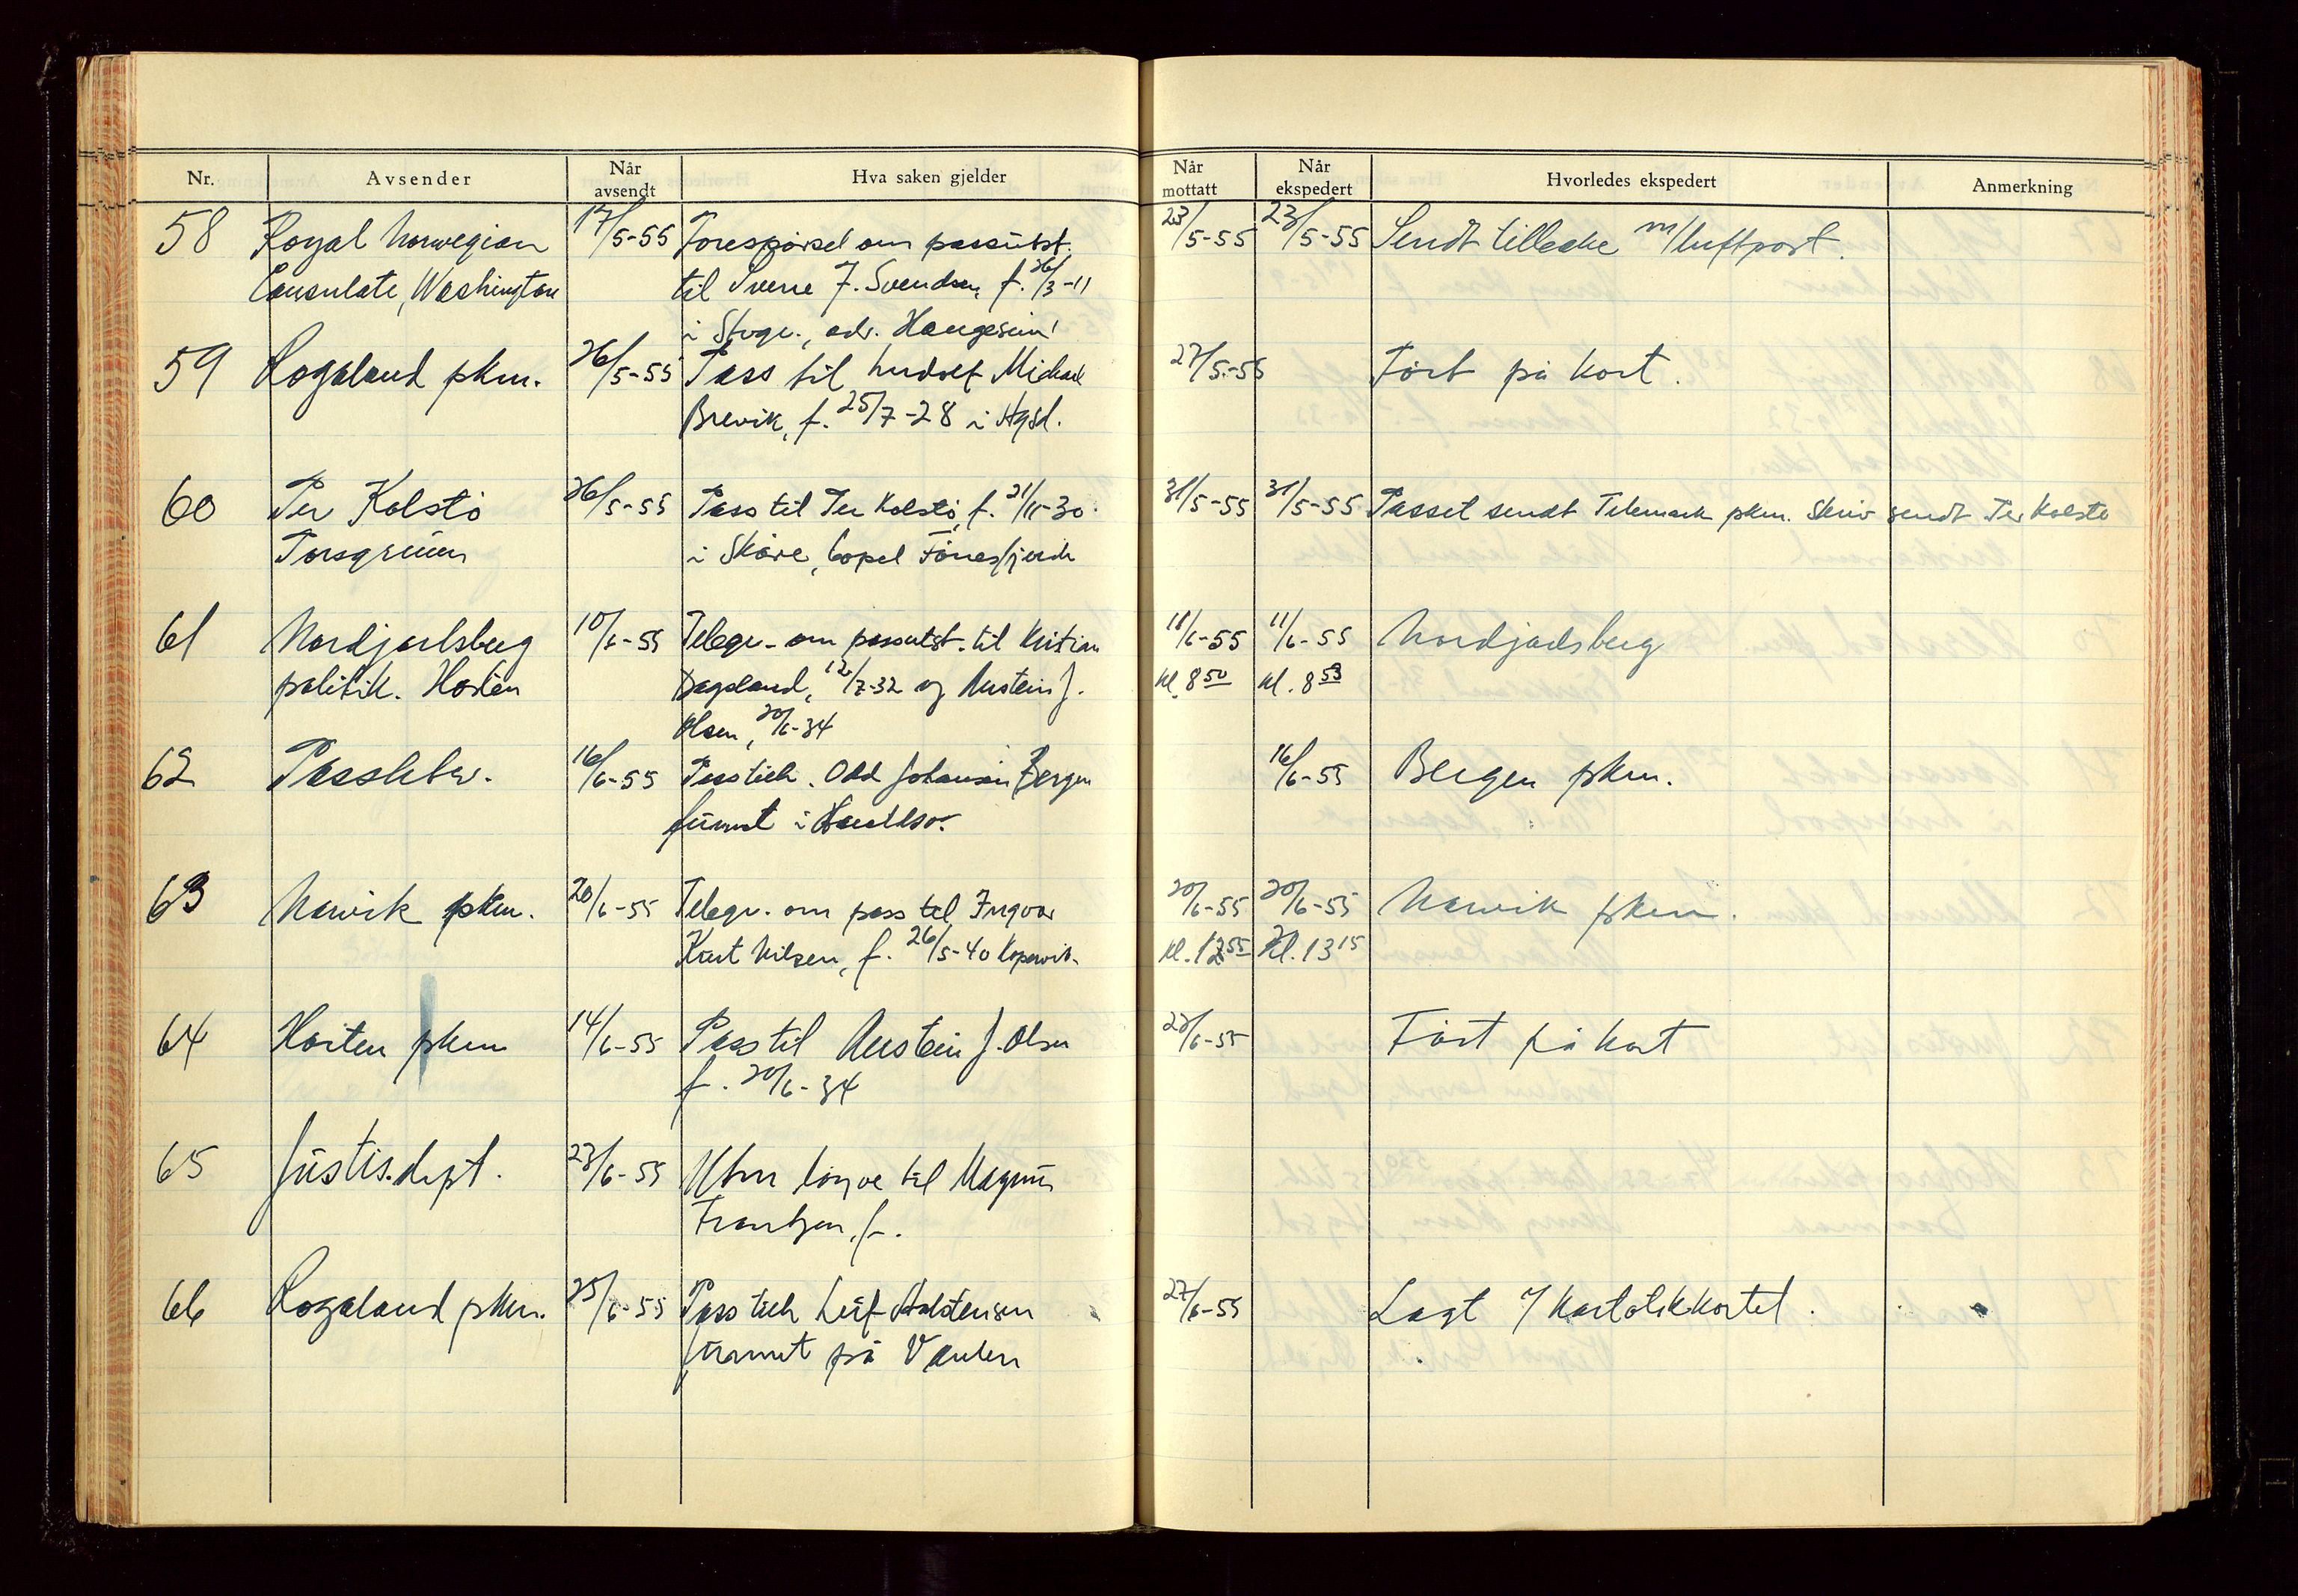 Nr. Avsender Når avsendt Hva saken gjelder Når mottatt Når ekspedert Hvorledes ekspedert Anmerkning
58 Royal Norwegian 17/5-55 Forespørsel om passutst. 23/5-55 23/5-55 Sendt tilbake m/luftpost.
Consulate, Washington til Sverre J. Svendsen, f. 26/3-11
i Stvgr., adr. Haugesund
59 Rogaland pkm. 26/5-55 Pass til Ludolf Michael 27/5-55 Ført på kort.
Brevik, f. 25/7-28 i Hgsd.
60 Per Kolstø 26/5-55 Pass til Per Kolstø, f. 21/11-30 31/5-55 31/5-55 Passet sendt Telemark pkm. Skriv sendt Per Kolstø
Porsgrunn i Skåre, bopel Førresfjorden
61 Nordjarlsberg 10/6-55 Telegr. om passutst. til Kristian 11/6-55 11/6-55 Nordjarlsberg
politik. Horten Dagsland, 12/7-32 og Austein J. kl. 8 50 kl. 8 53
Olsen, 20/6-34
62 16/6-55 Odd Johansen Bergen 16/6-55 Bergen pkm.
funnet i
63 Narvik pkm. 20/6-55 Telegr. om pass til Ingvar 20/6-55 20/6-55 Narvik pkm.
Kurt Nilsen, f. 26/5-40 Kopervik. kl. 12 55 Kl. 13 15
64 Horten pkm 14/6-55 Pass til Austein J. Olsen 23/6-55 Ført på kort
f. 20/6-34
65 Justis.dept. 23/6-55 løyve til Magnus
Frantzen, f.
66 Rogaland pkm. 25/6-55 Pass tilh. Leif Halstensen 27/6-55 Lagt i/ kartotekkortet.
funnet på